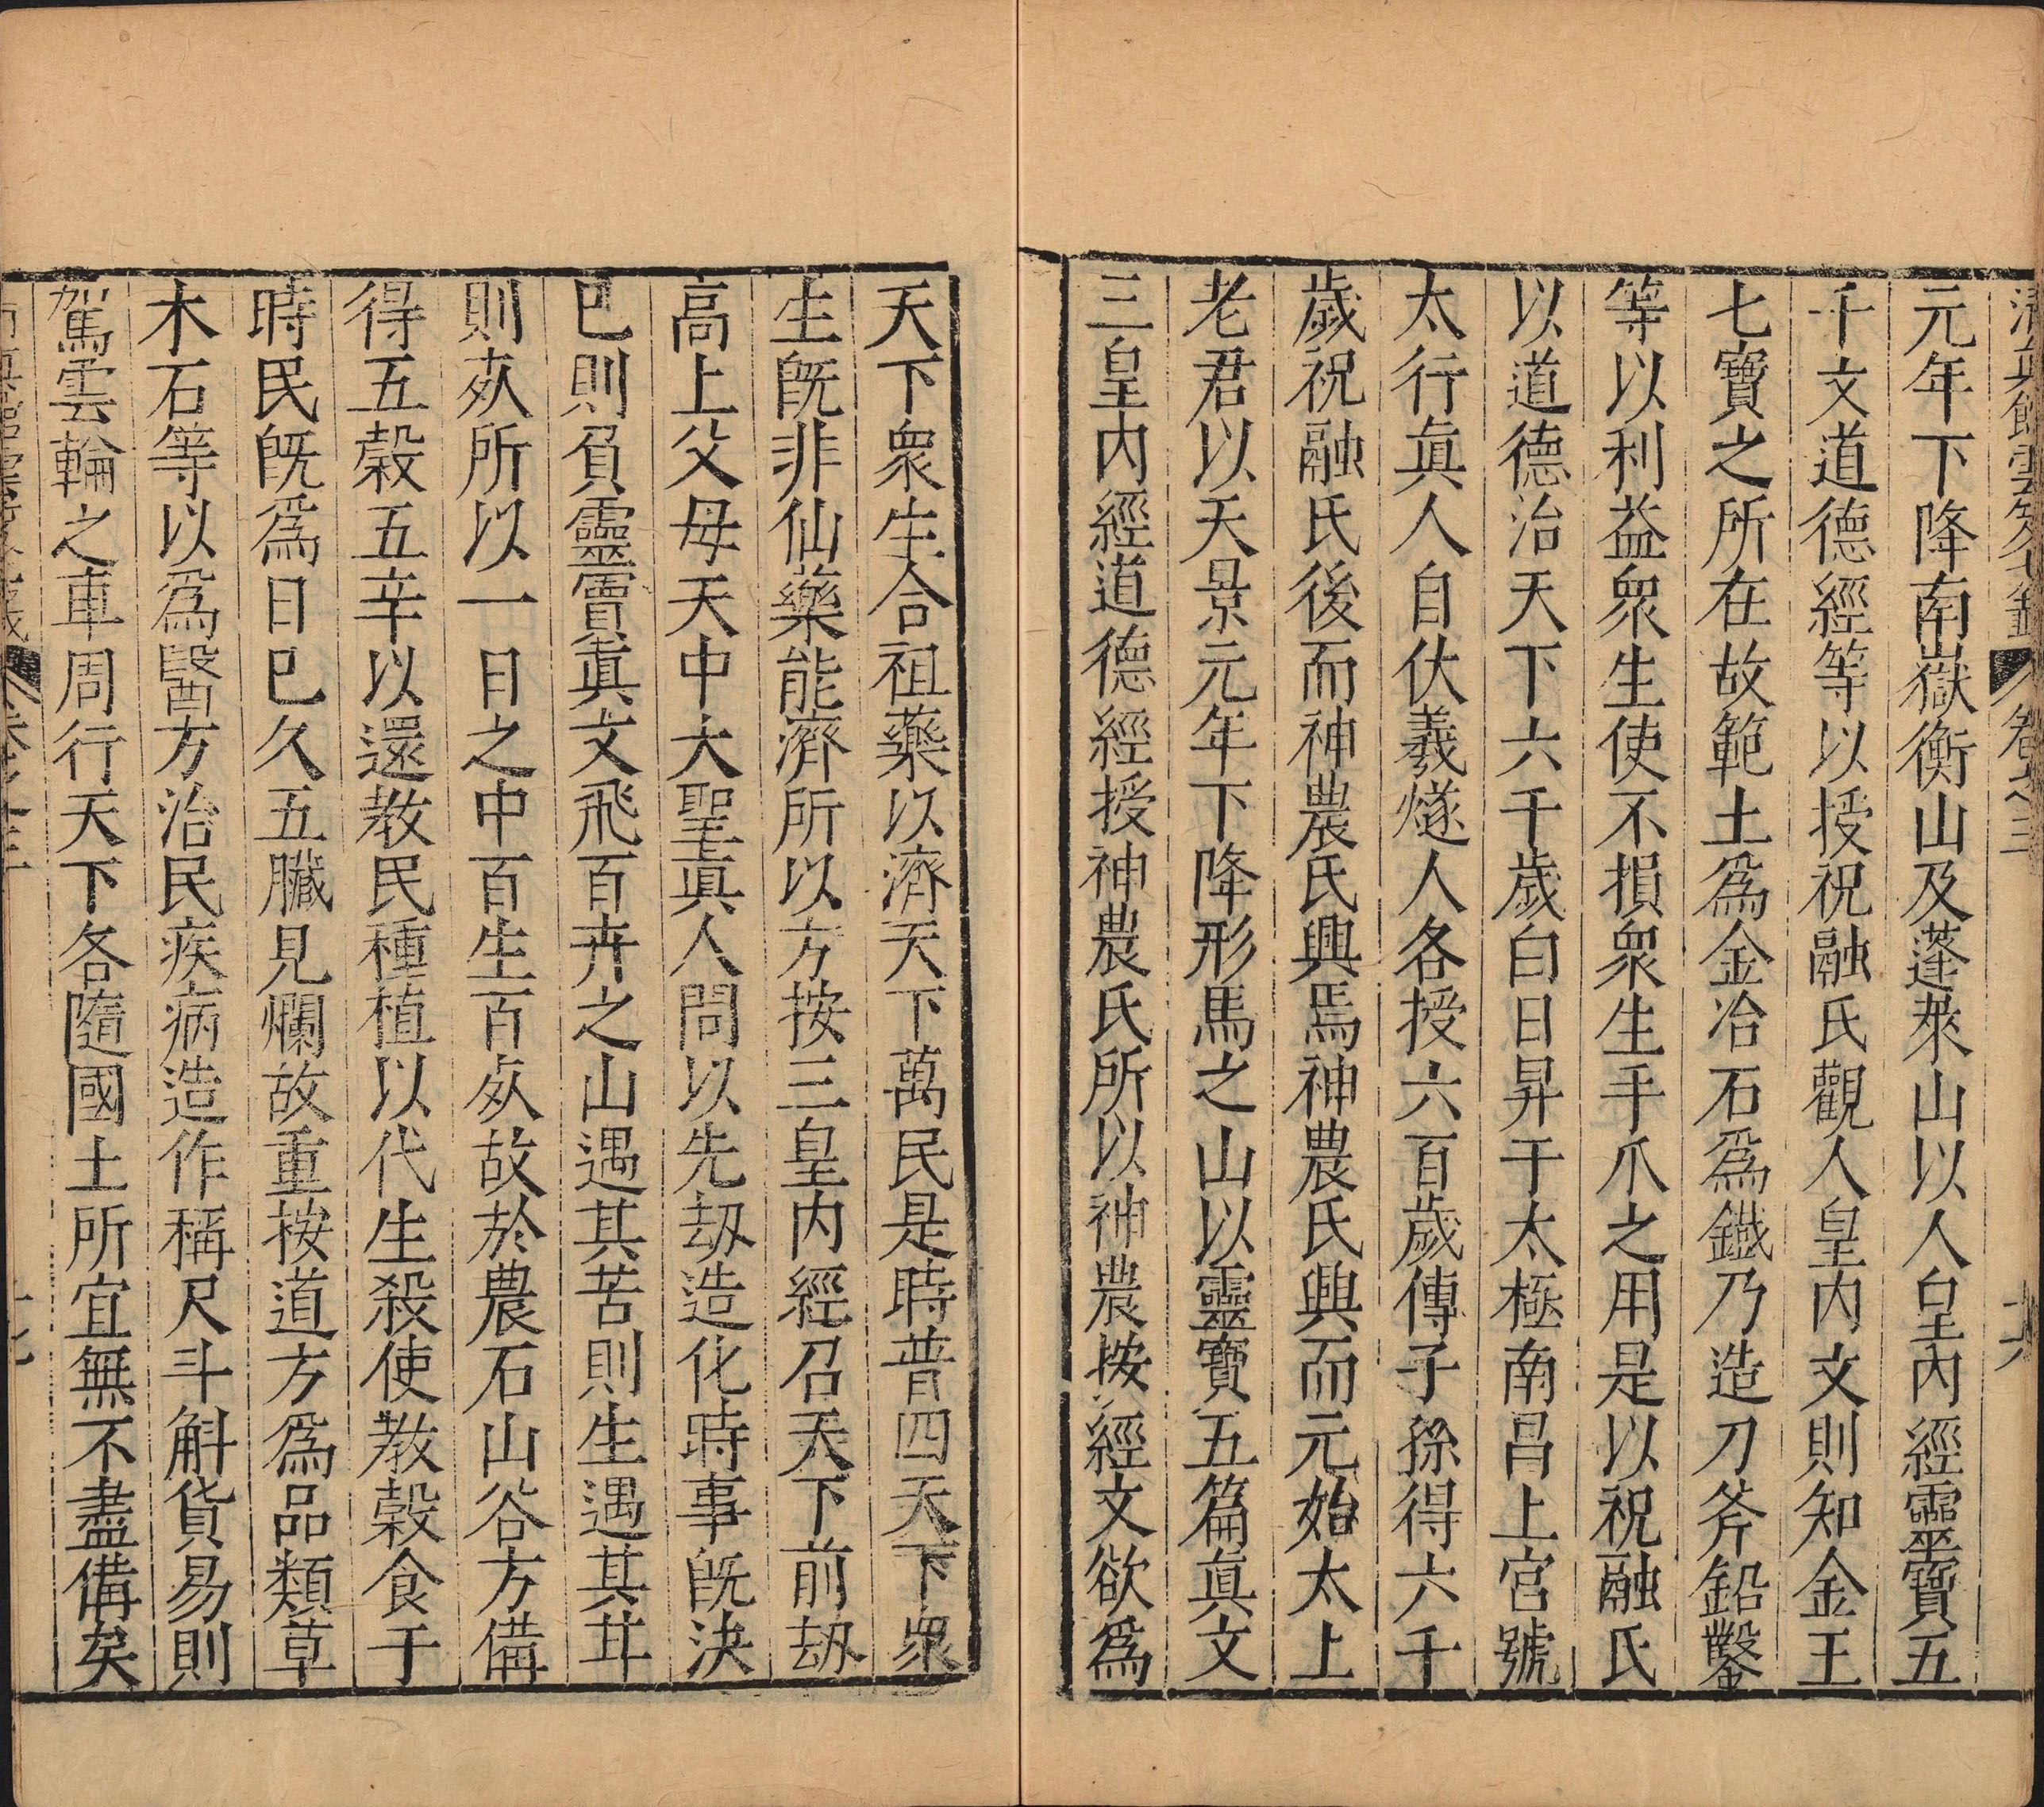 清眞館雲笈七籤 卷之三 十六
元年下降南嶽衡山及蓬萊山以人皇內經靈寶五
千文道德經等以授祝融氏觀人皇內文則知金王
七寶之所在故範土爲金冶石爲鐵乃造刀斧鉛鑿
等以利益衆生使不損衆生手爪之用是以祝融氏
以道德治天下六千歲白日昇于太極南昌上宮號
太行眞人自伏羲燧人各授六百歲傳子孫得六千
歲祝融氏後而神農氏興焉神農氏興而元始太上
老君以天景元年下降形馬之山以靈寶五篇眞文
三皇內經道德經授神農氏所以神農按經文欲爲
天下衆生合祖藥以濟天下萬民是時普四天下衆
生旣非仙藥能濟所以方按三皇內經召天下前劫
高上父母天中大聖眞人問以先劫造化時事旣決
已則負靈寶眞文飛百卉之山遇其苦則生遇其甘
則死所以一日之中百生百死故於農石山谷方備
得五穀五辛以還教民種植以代生殺使教穀食于
時民旣爲日已久五臟見爛故重按道方爲品類草
木石等以爲醫方治民疾病造作稱尺斗斛貨易則
駕雲輪之車周行天下各隨國土所宜無不盡備矣